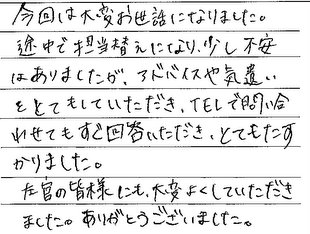 今回は大変お世話になりました。
途中で担当替えになり、少し不安
はありましたが、アドバイスや気遣い
をとてもしていただき、TELで問い合
わせてもすぐ回答いただき、とてもたす
かりました。
左官の皆様にも、大変よくしていただき
ました。ありがとうございました。